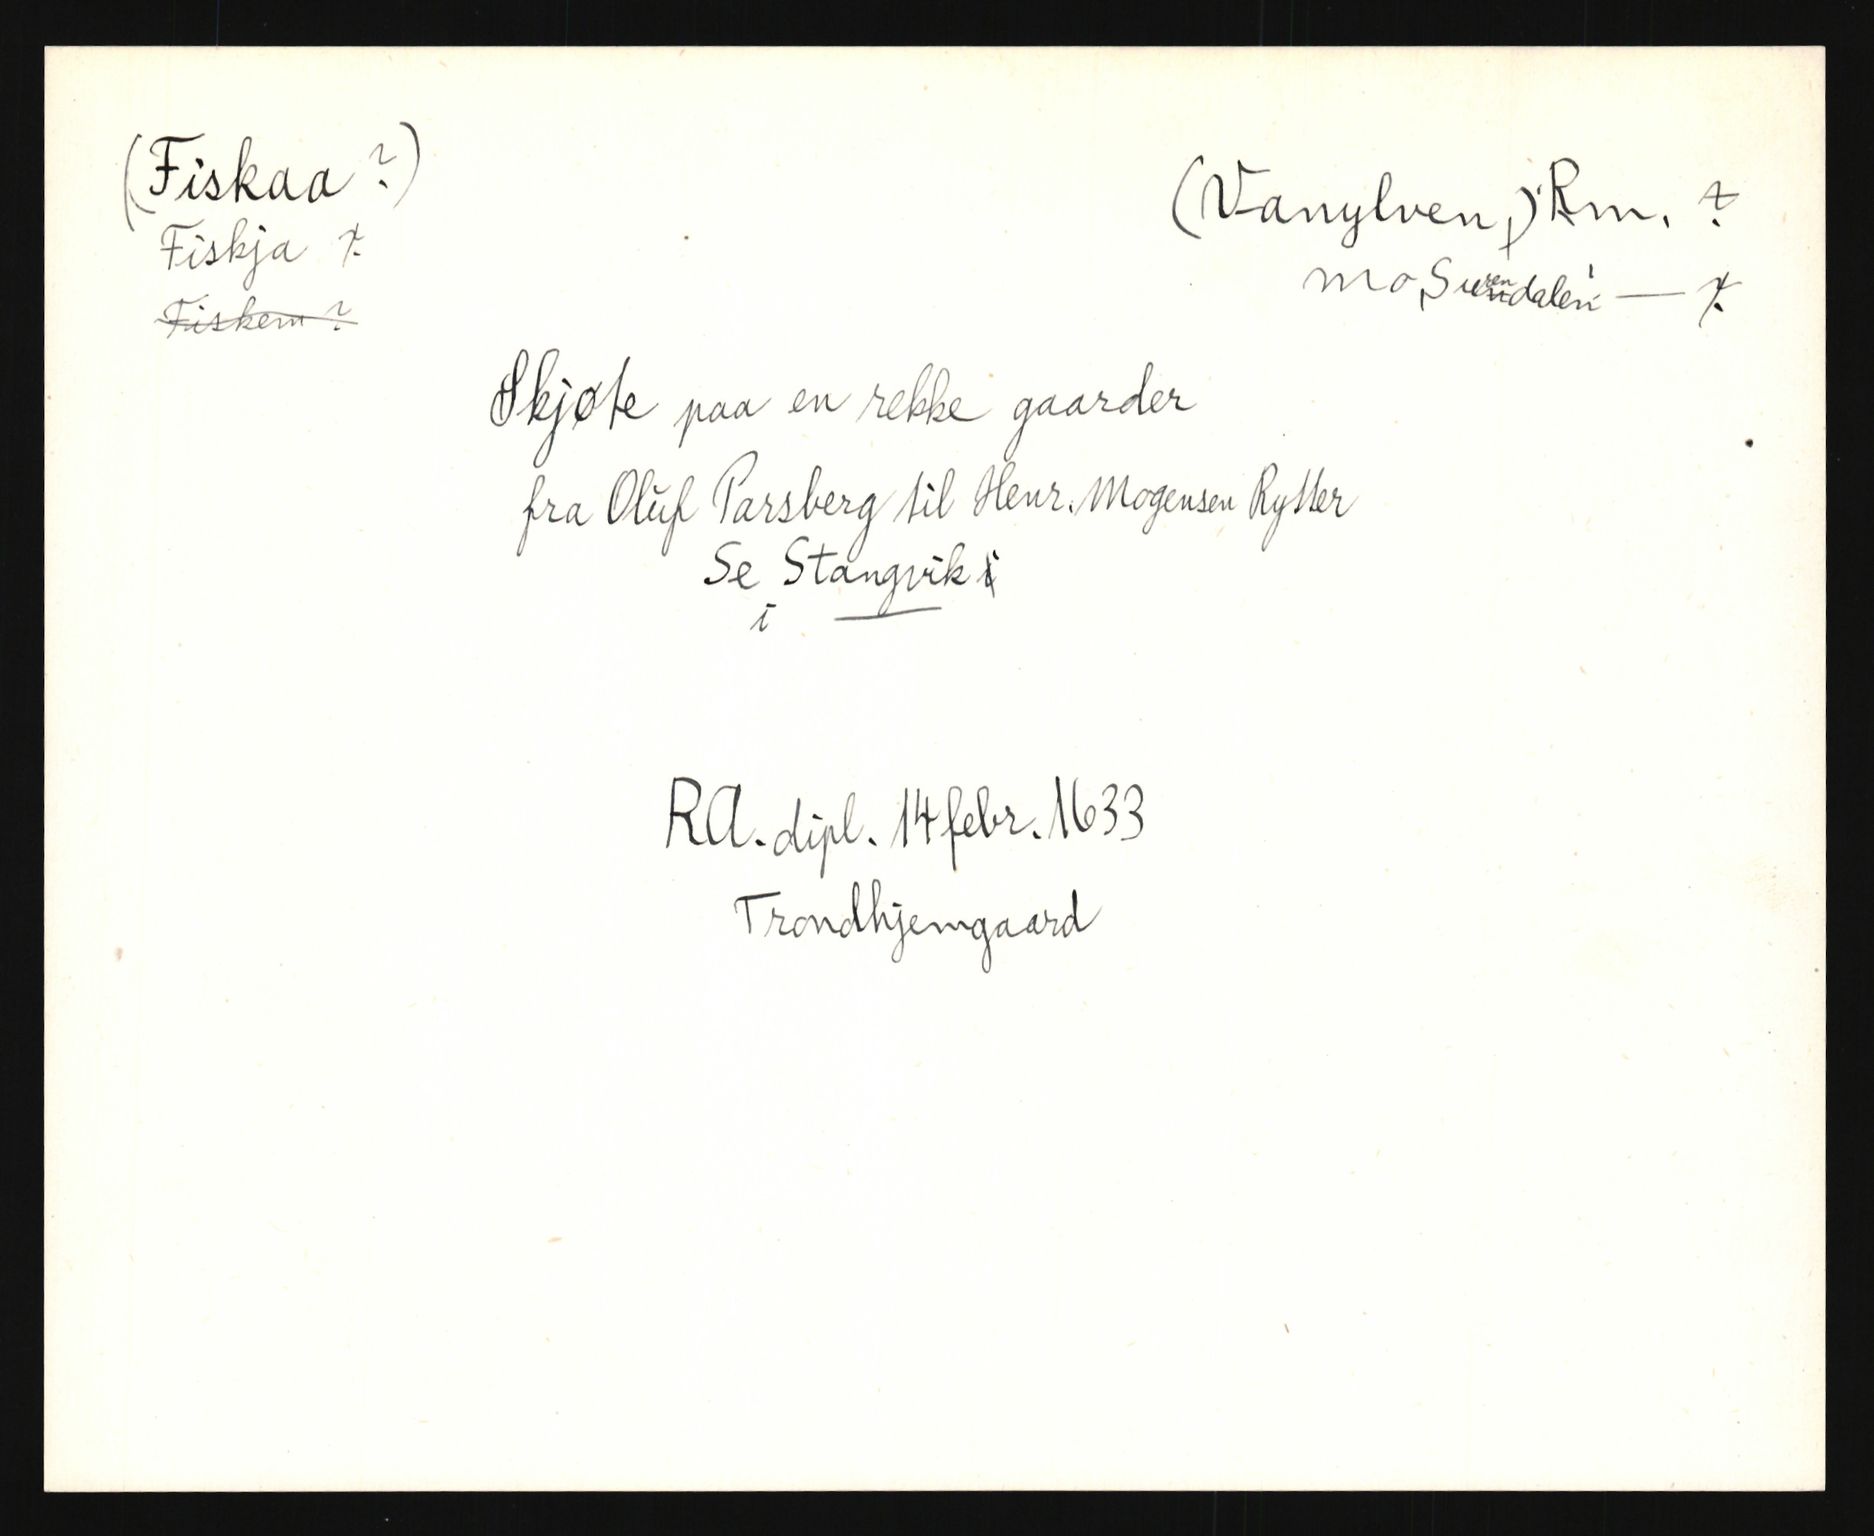 (Fiskaa ?)
(Vanylven,) Rm. ?
Fiskja ?
Mo, Surendalen — ?
Fiskem ?
Skjøte paa en rekke gaarder
fra Oluf Parsberg til Henr. Mogensen Rytter
Se Stangvik
i
RA. dipl. 14 febr. 1633
Trondhjemgaard